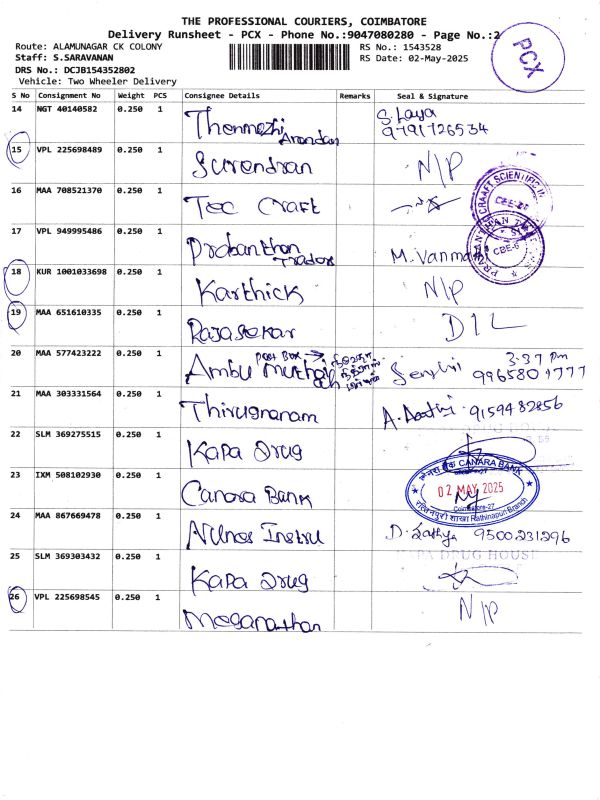 THE PROFESSIONAL COURIERS, COIMBATORE
Delivery Runsheet - PCX - Phone No.:9047080280 - Page No.:2
Route: ALAMUNAGAR CK COLONY
RS No.: 1543528
Staff: S.SARAVANAN
RS Date: 02-May-2025
DRS No.: DCJB154352802
Vehicle: Two Wheeler Delivery
PCX
S No Consignment No Weight PCS Consignee Details Remarks Seal & Signature
14 NGT 40140582 0.250 1 Thenmozhi Anandan S. Laya
9791726534
15 VPL 225698489 0.250 1 Surendran N/P
16 MAA 708521370 0.250 1 Tec Craft
17 VPL 949995486 0.250 1 Prabanthan Traders M. Vanmathi
18 KUR 1001033698 0.250 1 Karthick N/P
19 MAA 651610335 0.250 1 Rajasekar D I L
20 MAA 577423222 0.250 1 Ambu Post Box 3.37 Pm
9965801777
21 MAA 303331564 0.250 1 Thirugnanam 9159482856
22 SLM 369275515 0.250 1 Kapa Drug
23 IXM 508102930 0.250 1 Canara Bank
CANARA BANK
02 MAY 2025
Coimbatore-27
Rathinapuri Branch
24 MAA 867669478 0.250 1 D. Sathya 9500231296
25 SLM 369303432 0.250 1 Kapa Drug
KAPA DRUG HOUSE
26 VPL 225698545 0.250 1 Meganathan N/P